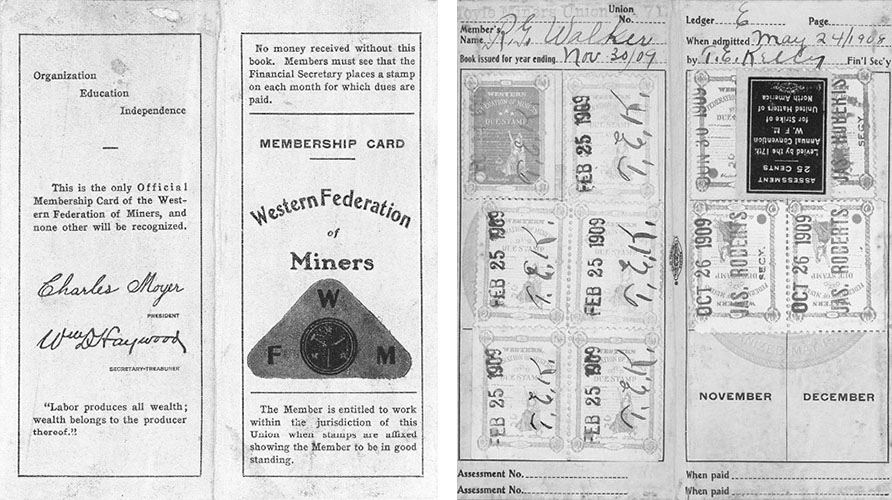 Organization
Education
Independence
This is the only Official
Membership Card of the West-
ern Federation of Miners, and
none other will be recognized.
Charles Moyer
PRESIDENT
Wm D Haywood
SECRETARY-TREASURER
"Labor produces all wealth;
wealth belongs to the producer
thereof."
No money received without this
book. Members must see that the
Financial Secretary places a stamp
on each month for which dues are
paid.
MEMBERSHIP CARD
Western Federation
of
Miners
W
F M
The Member is entitled to work
within the jurisdiction of this
Union when stamps are affixed
showing the Member to be in good
standing.
Union
No. 71
Member's
Name R G Walker
Book issued for year ending. Nov 30/09
WESTERN
FEDERATION OF MINERS
DUE STAMP
T.E.K.
FEB 25 1909
T.E.K.
FEB 25 1909
T.E.K.
FEB 25 1909
T.E.K.
FEB 25 1909
T.E.K.
FEB 25 1909
T.E.K.
Assessment No.
Assessment No.
Ledger E Page
When admitted May 24/1908
by T. E. Kelly Fin'l Sec'y
JUN 30 1909
ASSESSMENT
25 CENTS
Levied by the 17th.
Annual Convention
W. F. M.
for Strike of
United Hatters of
North America
JAS. ROBERTS
SECY.
OCT 26 1909
JAS. ROBERTS
SECY.
OCT 26 1909
JAS. ROBERTS
NOVEMBER
DECEMBER
When paid
When paid